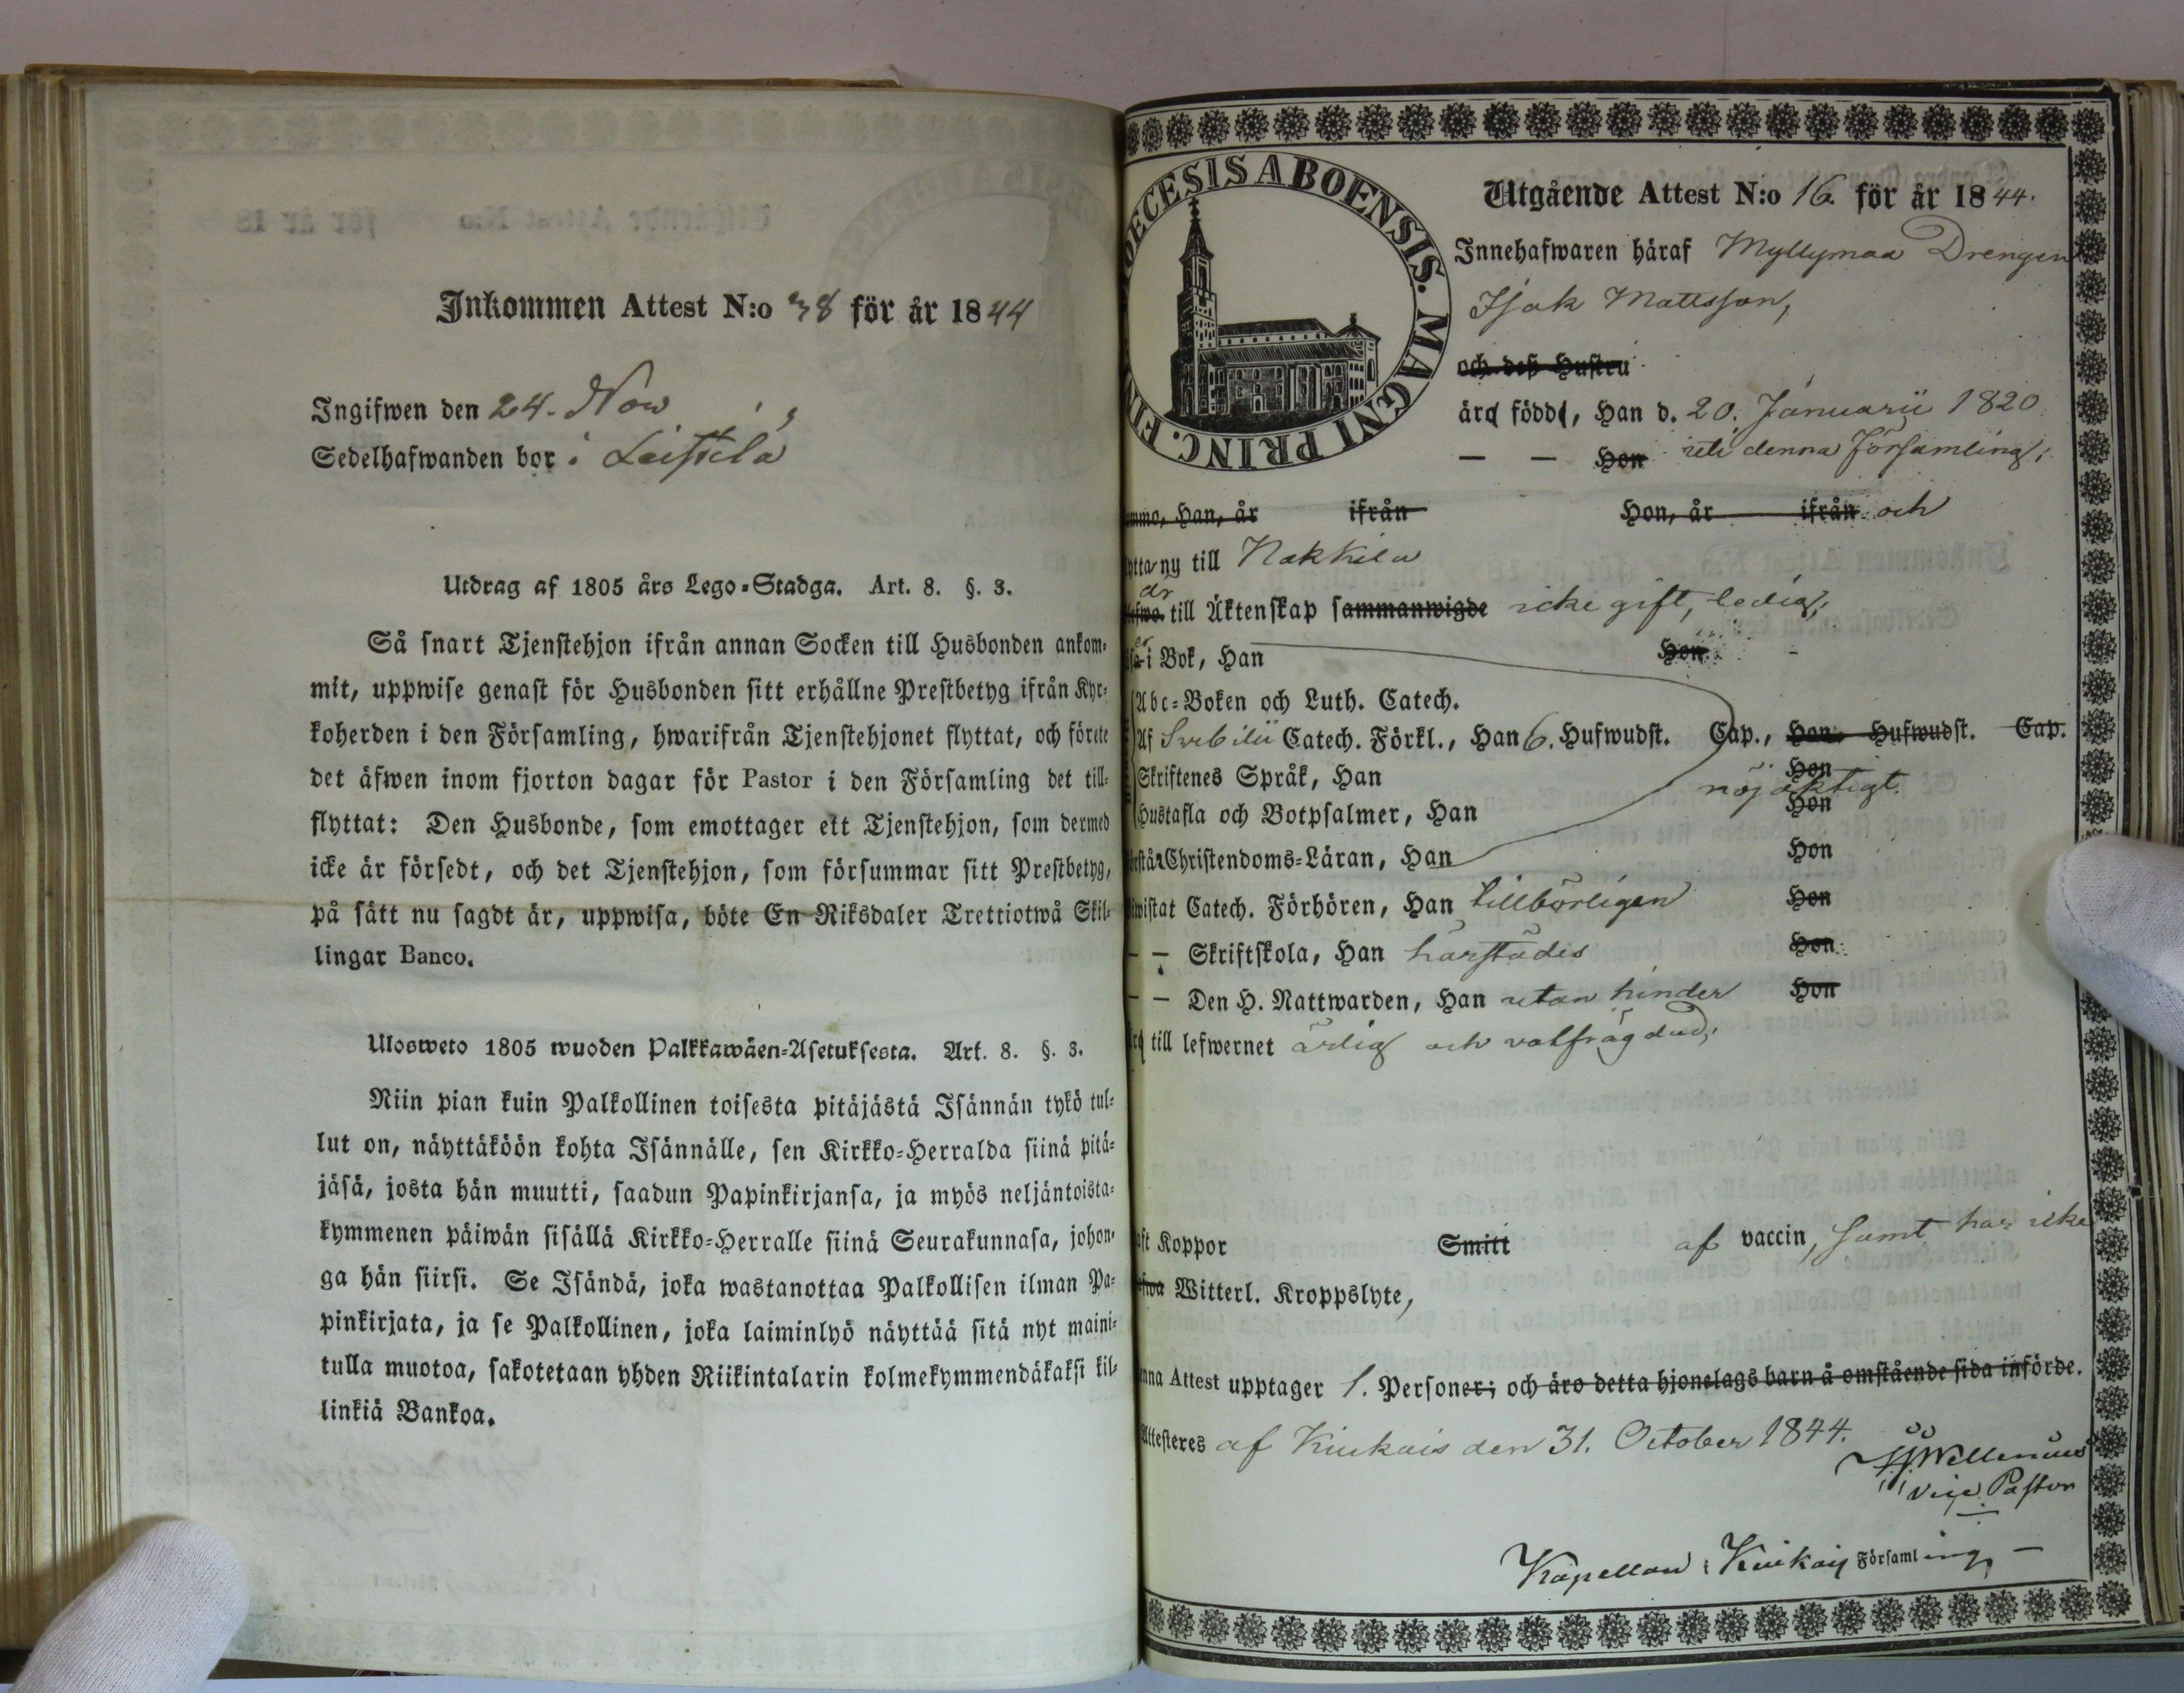 Inkommen Attest N:o 38 för år 1844
Ingifwen den 24. Nov
Sedelhafwanden bor i Leistilä
Utdrag af 1805 års Lego-Stadga. Art. 8. §. 3.
Så snart Tjenstehjon ifrån annan Socken till Husbonden ankom-
mit, uppwise genast för Husbonden sitt erhållne Prestbetyg ifrån Kyr-
koherden i den Församling, hwarifrån Tjenstehjonet flyttat, och förete
det äfwen inom fjorton dagar för Pastor i den Församling det till-
flyttat: Den Husbonde, som emottager ett Tjenstehjon, som dermed
icke är försedt, och det Tjenstehjon, som försummar sitt Prestbetyg,
på sätt nu sagdt är, uppwisa, böte En Riksdaler Trettiotwå Skil-
lingar Banco.
Ulosweto 1805 wuoden Palkkawäen-Asetuksesta. Art. 8. §. 3.
Niin pian kuin Palkollinen toisesta pitäjästä Isännän tykö tul-
lut on, näyttäköön kohta Isännälle, sen Kirkko-Herralda siinä pitä-
jäsä, josta hän muutti, saadun Papinkirjansa, ja myös neljäntoista-
kymmenen päiwän sisällä Kirkko-Herralle siinä Seurakunnasa, johon-
ga hän siirsi. Se Isändä, joka wastanottaa Palkollisen ilman Pa-
pinkirjata, ja se Palkollinen, joka laiminlyö näyttää sitä nyt maini-
tulla muotoa, sakotetaan yhden Riikintalarin kolmekymmendäkaksi kil-
linkiä Bankoa.
DIOECESIS ABOENSIS. MAGNI PRINC. FIN
Utgående Attest N:o 16. för år 1844.
Innehafwaren häraf Myllymaa Drengen
Isak Mattsson,
och deß Hustru
äro född, Han d. 20. Januarii 1820
— — Hon uti denna församling;
Han, år ifrån Hon, år ifrån och
ny till Nakkila
är
till Äktenskap sammanwigde icke gift, ledig;
i Bok, Han Hon
Abc-Boken och Luth. Catech.
Af Svebilii Catech. Förkl., Han 6. Hufwudst. Cap., Hon Hufwudst. Cap.
Skriftenes Språk, Han Hon
nöjaktigt.
Hustafla och Botpsalmer, Han Hon
Christendoms-Läran, Han Hon
Catech. Förhören, Han tillbörligen Hon
— — Skriftskola, Han härstädes Hon
— — Den H. Nattwarden, Han utan hinder Hon
till lefwernet ärlig och välfrägdad;
Koppor Smitt af vaccin, samt har icke
Witterl. Kroppslyte,
Attest upptager 1. Personer; och äro detta hjonelags barn å omstående sida införde.
Attesteres af Kiukais den 31. October 1844.
Wellenius
vice Pastor
Kapellan i Kiukais Församling, —